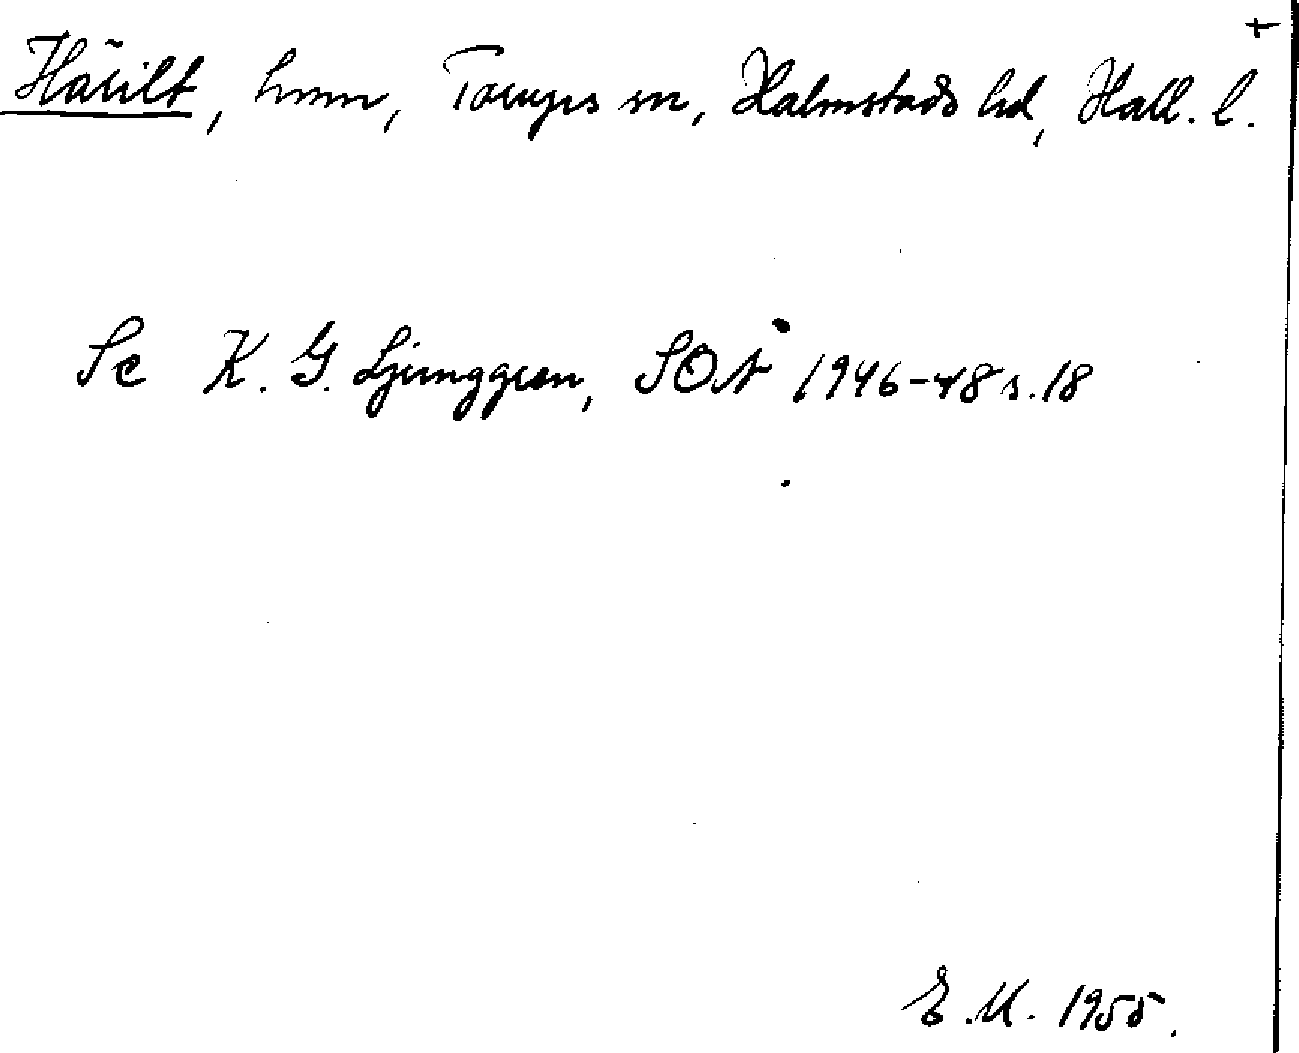 +
Härilt, hmn, Torups sn, Halmstads hd, Hall. l.
Se K. G. Ljunggren, SOÅ 1946-48 s. 18
E.M. 1955.